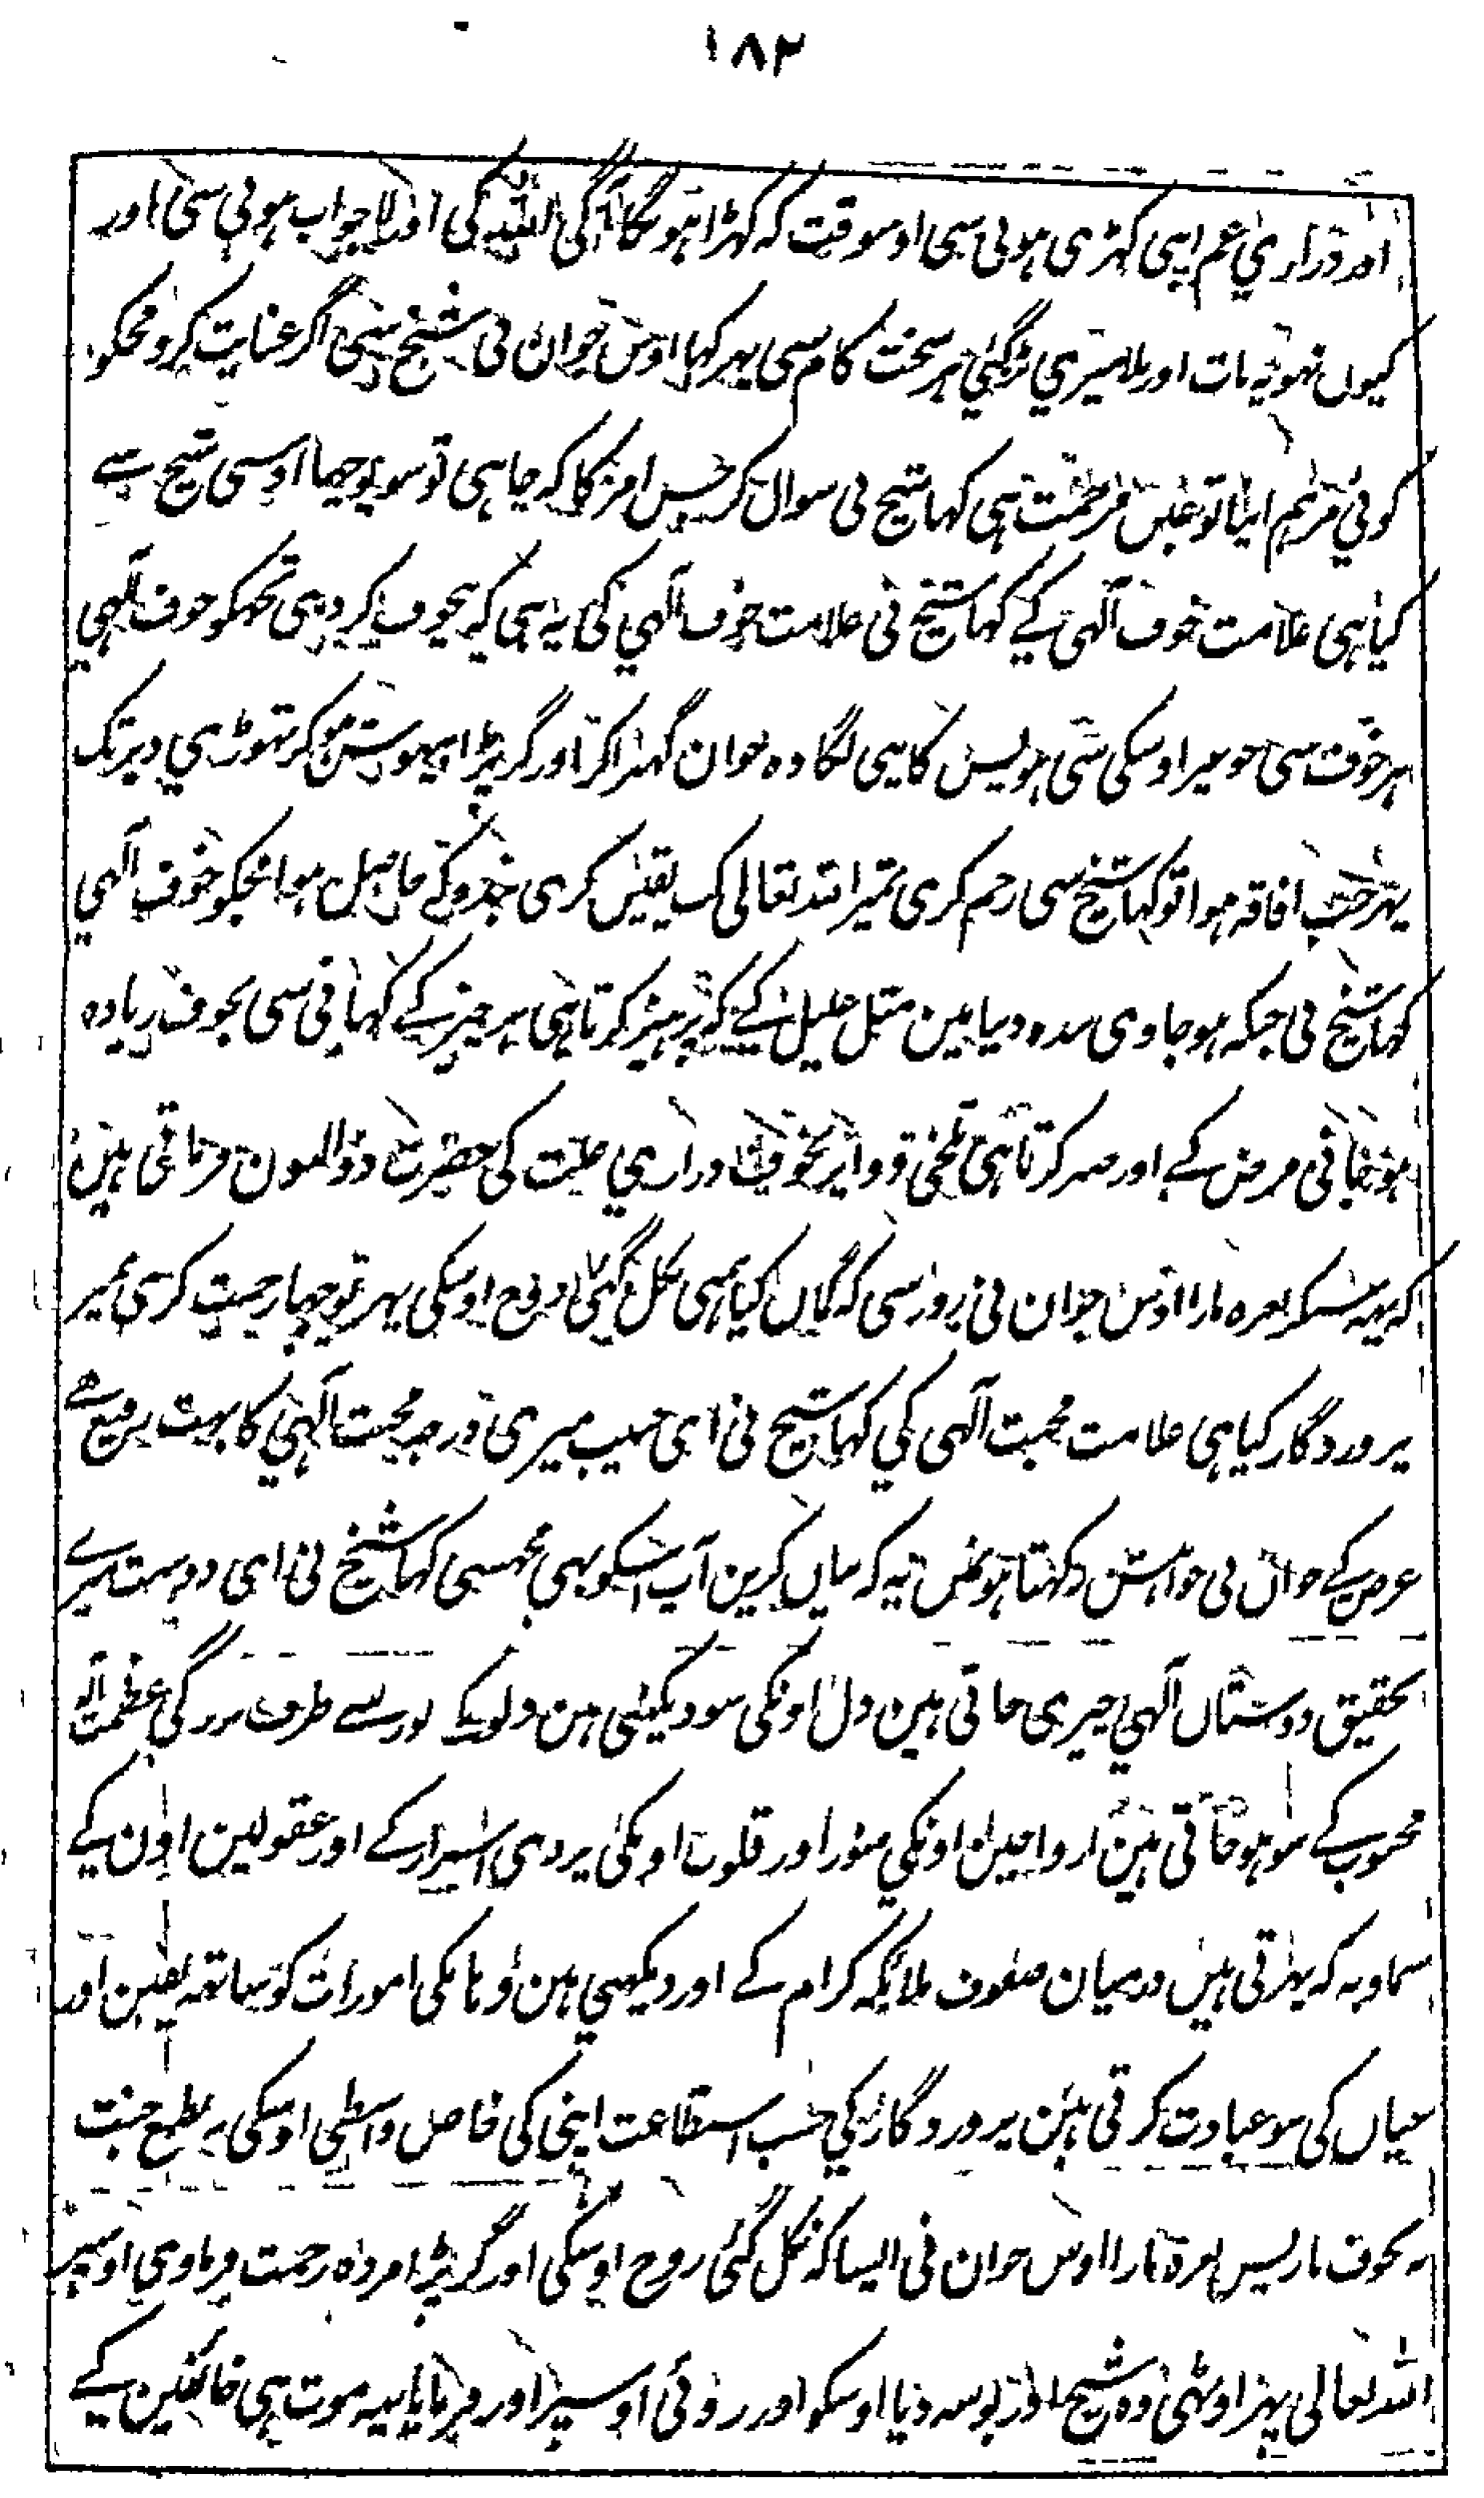 ۱۸۲
اور درازي غم اپنی کہڑی ہونی سی اوسوقت کہ کہڑا ہونگا آگی اللہ کی اور لاجواب ہونی سی اور
کیوں نہو یہ بات اور بلا میری بڑگئی ہر سخت کام سی پہر کہا اوس جوان نی شیخ سی اگر عنایت کرو مجکو
کوئی مرہم اپنا تو عین مرحمت ہی کہا شیخ نی سوال کر جس امر کا کہ چاہی تو سو پوچھا اوسی شیخ سے
کیا ہی علامت خوف آلہی کے کہا شیخ نی علامت خوف آلہی کی یہ ہی کہ بیخوف کر دیوی تجھکو خوف آلہی
ہر خوف سی جو غیر اوسکی سی ہو پس کانپنی لگا وہ جوان گہبرا کر اور گر پڑا بیہوش ہو کر تہوڑی دیر تک
پہر جب افاقہ ہوا تو کہا شیخ سی رحم کری تمپر اللہ تعالی کب یقین کری بندہ کے حاصل ہوا مجکو خوف الہی
کہا شیخ نی جبکہ ہو جاوی بندہ دنیا مین مثل علیل کے کہ پرہیز کرتا ہی ہر چیز کے کہانی سی بخوف زیادہ
ہو جانی مرض کے اور صبر کرتا ہی تلخی دوا پر بخوف درازي علت کی حضرت ذوالنون فرماتی ہین
کہ یہہ سنکر نعرہ مارا اوس جوان نی زور سی کہ گمان کیا ہمنی نکل گئی روح اوسکی پہر پوچہا رحمت کری تمپر
پروردگار کیا ہی علامت محبت آلہی کی کہا شیخ نی ای حبیب میری درجہ محبت آلہی کا بہت رفیع ہے
عرض کے جوان نی خواہش رکہتا ہونمین یہ کہ بیاں کرین آپ اسکو بہی مجہسی کہا شیخ نی ای دوست میرے
تحقیق دوستاں آلہی چیری جاتی ہین دل اونکی سو دیکہتی ہین دلونکے نور سے طرف بزرگی عظمت آلہ
محبوب کے سو ہو جاتی ہین ارواحین اونکی منور اور قلوب اونکی پردی اسرار کے اور عقولین اون کے
سماویہ کہ پہرتی ہین درمیان صفوف ملایکہ کرام کے اور دیکہتی ہین اونکی امورات کو ساتھ یقین اور
عیاں کی سو عبادت کرتی ہین پروردگار کی حسب استطاعت اپنی کی خاص واسطی اوسکی نہ بطمع جنت
نہ بخوف نار پس نعرہ مارا اوس جوان نی ایسا کہ نکل گئی روح اوسکی اور گر پڑا مردہ رحمت فرماوی اوسپر
اللہ تعالی پہر اوٹہی وہ شیخ اور بوسہ دیا اوسکو اور روئی اوسپر اور فرمایا یہ موت ہی خائفین کے